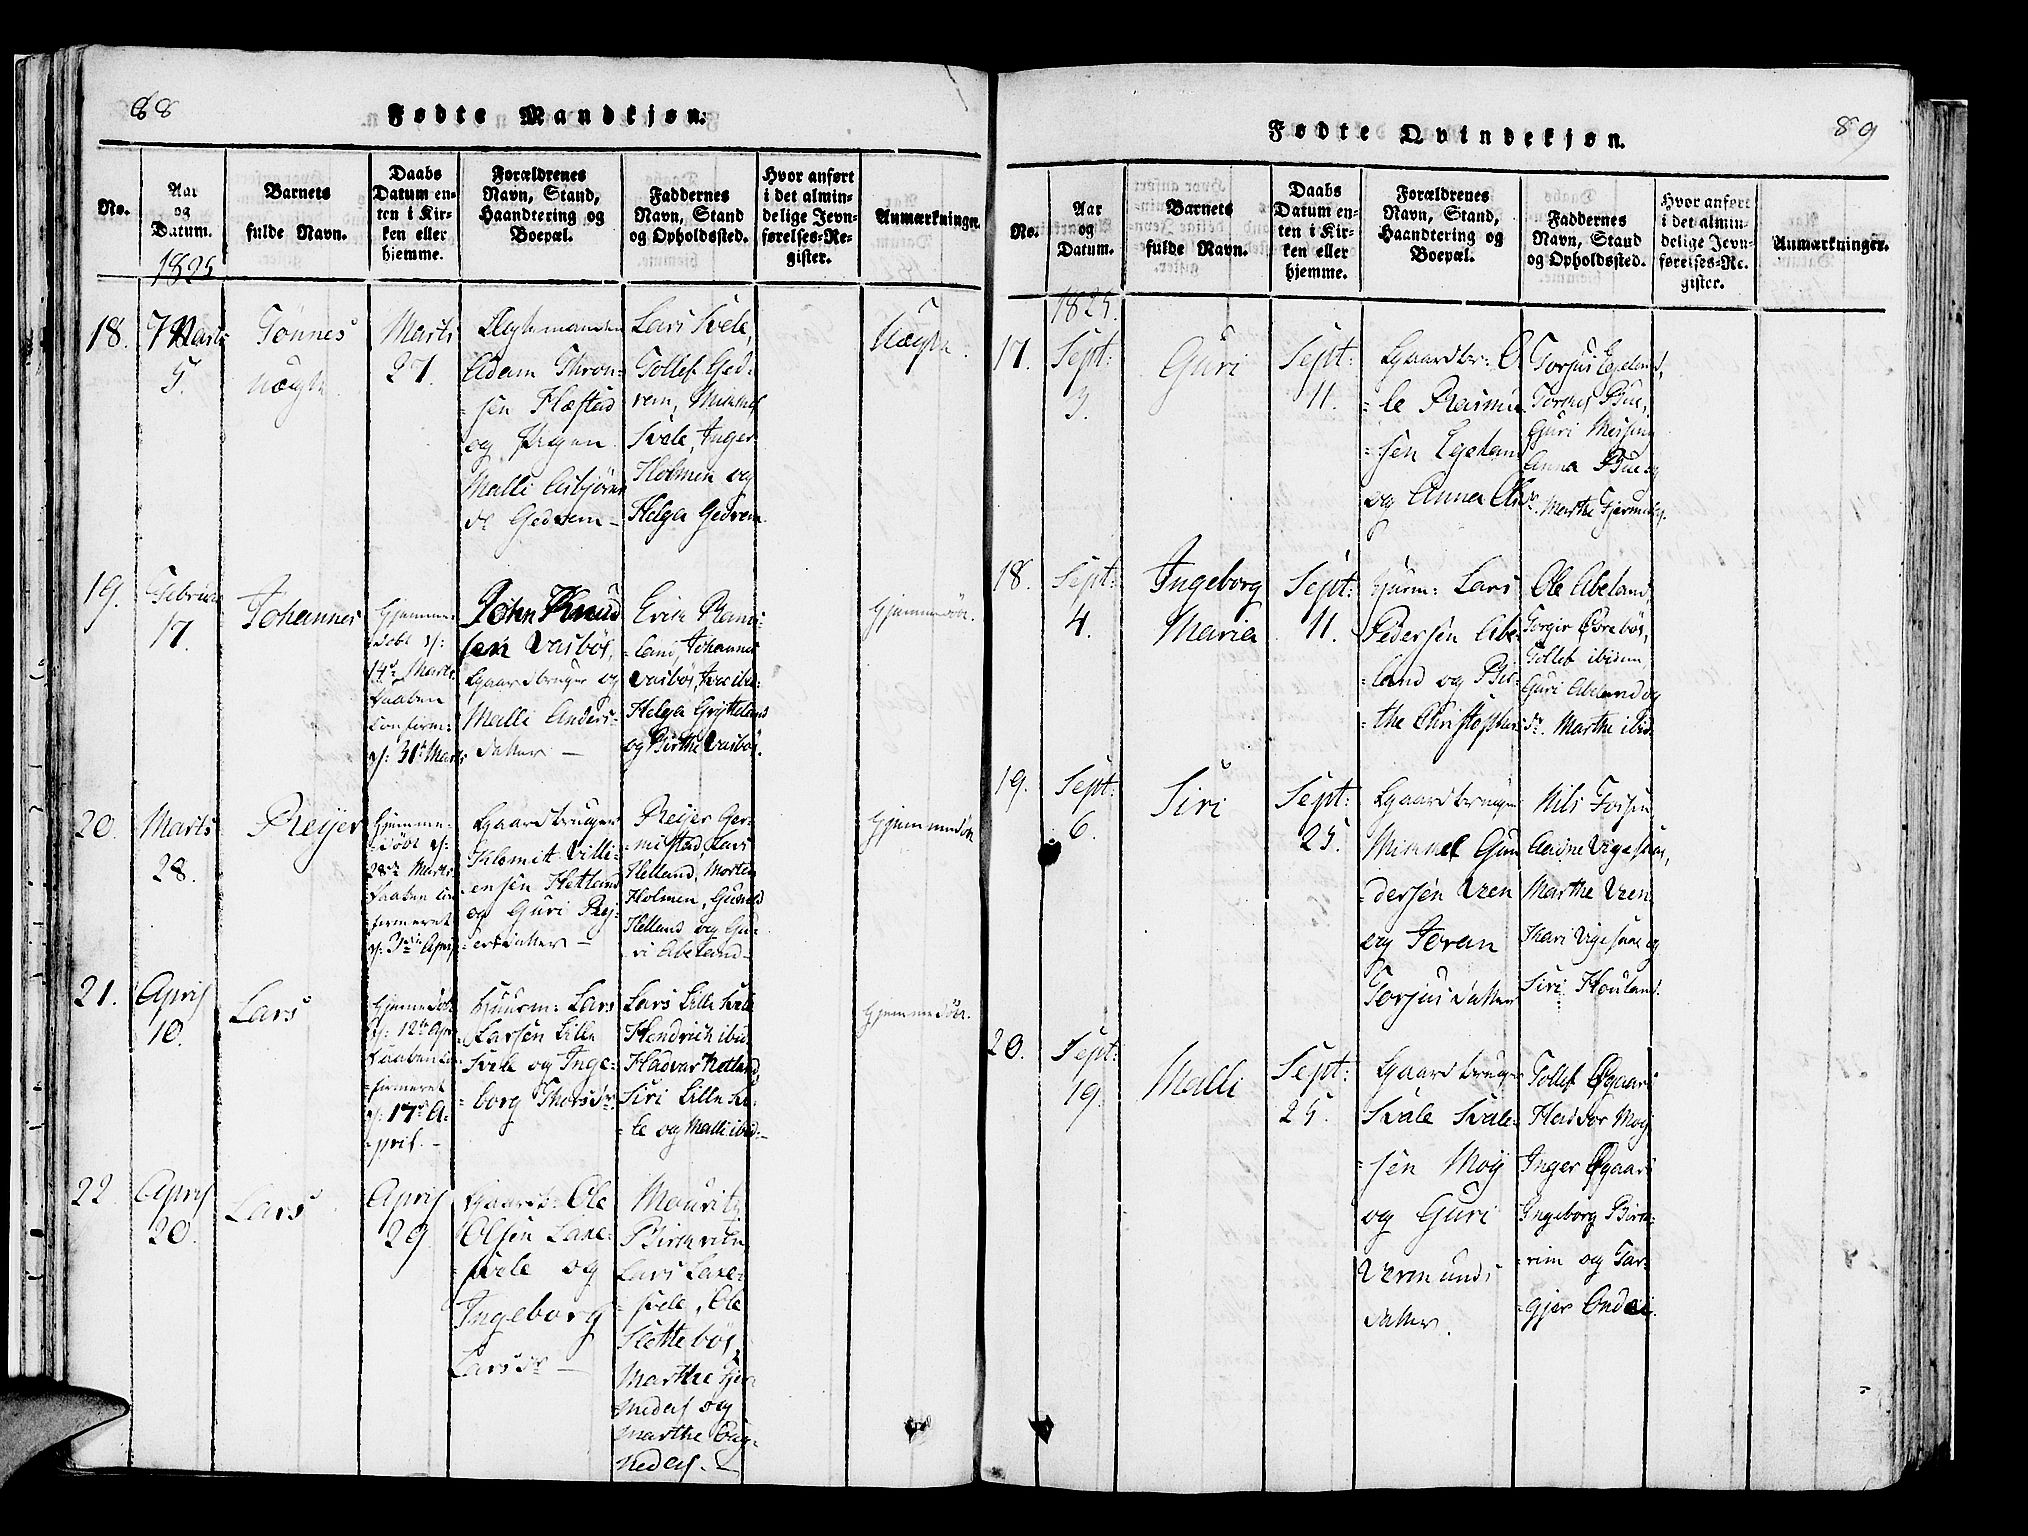 88
Fødte Mandkjøn.
No.
Aar
og
Datum.
Barnets
fulde Navn.
Daabs
Datum en-
ten i Kir-
ken eller
hjemme.
Forældrenes
Navn, Stand,
Haandtering og
Boepæl.
Faddernes
Navn, Stand
og Opholdssted.
Hvor anført
i det almin-
delige Jevn-
førelses-Re-
gister.
Anmærkninger.
1825
18.
Marts
5.
Tønnes
uægte
Marts
27.
Adam Thron-
sen Flæstad
og Pigen
Malli Asbjørns
dr Gedrem –
Lars Svele,
Tollef Ged-
rem, Mikkel
Svele, Inger
Holmen og
Helga Gedrem
Uægte.
19.
Februar
17.
Johannes
Hjemme-
døbt d:
14de Marts.
Daaben
Confirm:
d: 31te Marts
John Knud
sen Vasbøs,
Gaardbruger og
Malli Anders-
datter –
Erik Rams-
land, Johannes
Vasbøs,
Helga Grytteland
og Birthe Vasbøs.
Hjemmedøbt.
20.
Marts
28.
Reijer
Hjemme-
døbt d:
28de Marts
Daaben con
firmeret
d: 3die April
Gaardbruger
Klemit Villi-
ensen Hetland
og Guri Rej-
ersdatter –
Reijer Ger-
mistad, Lars
Helland, Morten
Holmen, Gunild
Helland og Gu-
ri Abeland –
Hjemmedøbt
21.
April
10.
Lars
Hjemmedøbt
d: 12te Apr
Daaben con
firmeret
d: 17de A-
pril. –
Huusm: Lars
Larsen Lille
Svele og Inge-
borg Thorsdr.
Lars Lille Svele
Hendrich ibid
Hadvar Hetland,
Siri Lille Sve-
le og Malli ibid –
Hjemmedøbt.
22.
April
20.
Lars
April
29.
Gaardb: Ole
Olsen Lake-
svele og
Ingeborg
Larsdr –
Mauritz
Birkrem,
Lars Lake-
svele, Ole
Slettebøs,
Marthe
og
Marthe
89
Fødte Qvindekjøn.
No.
Aar
og
Datum.
Barnets
fulde Navn.
Daabs
Datum en-
ten i Kir-
ken eller
hjemme.
Forældrenes
Navn, Stand,
Haandtering og
Boepæl.
Faddernes
Navn, Stand
og Opholdssted.
Hvor anført
i det almin-
delige Jevn-
førelses-Re-
gister.
Anmærkninger.
1825.
17.
Sept:
3.
Guri
Sept:
11.
Gaardbr: O
le Rasmu
sen Egeland
og Anna
Torjus Egeland,
Tornes Bue,
Guri
Anna Bue og
Marthe
18.
Sept:
4.
Ingeborg
Maria
Sept:
11.
Huusm: Lars
Pedersen Abe-
land og Bir-
the Christopher
Ole Abeland,
Torgir Ørebøs,
Tollef ibidem
Guri Abeland og
dr. Marthe ibid
19.
Sept:
6.
Siri
Sept:
25.
Gaardbruger
Mikkel Gun
dersen Vren
og Joran
Torjusdatter
Nils Fossen
Marthe Vren
Kari Vigesaae og
Siri Houland.
20.
Sept:
19.
Malli
Sept:
25.
Gaardbruger
Svale Svale-
sen Moij
og Guri
Vermunds
datter.
Tollef Øgaard
Hadvor Moij
Inger Øgaard
Ingeborg Birk-
rem og Tar-
gjer